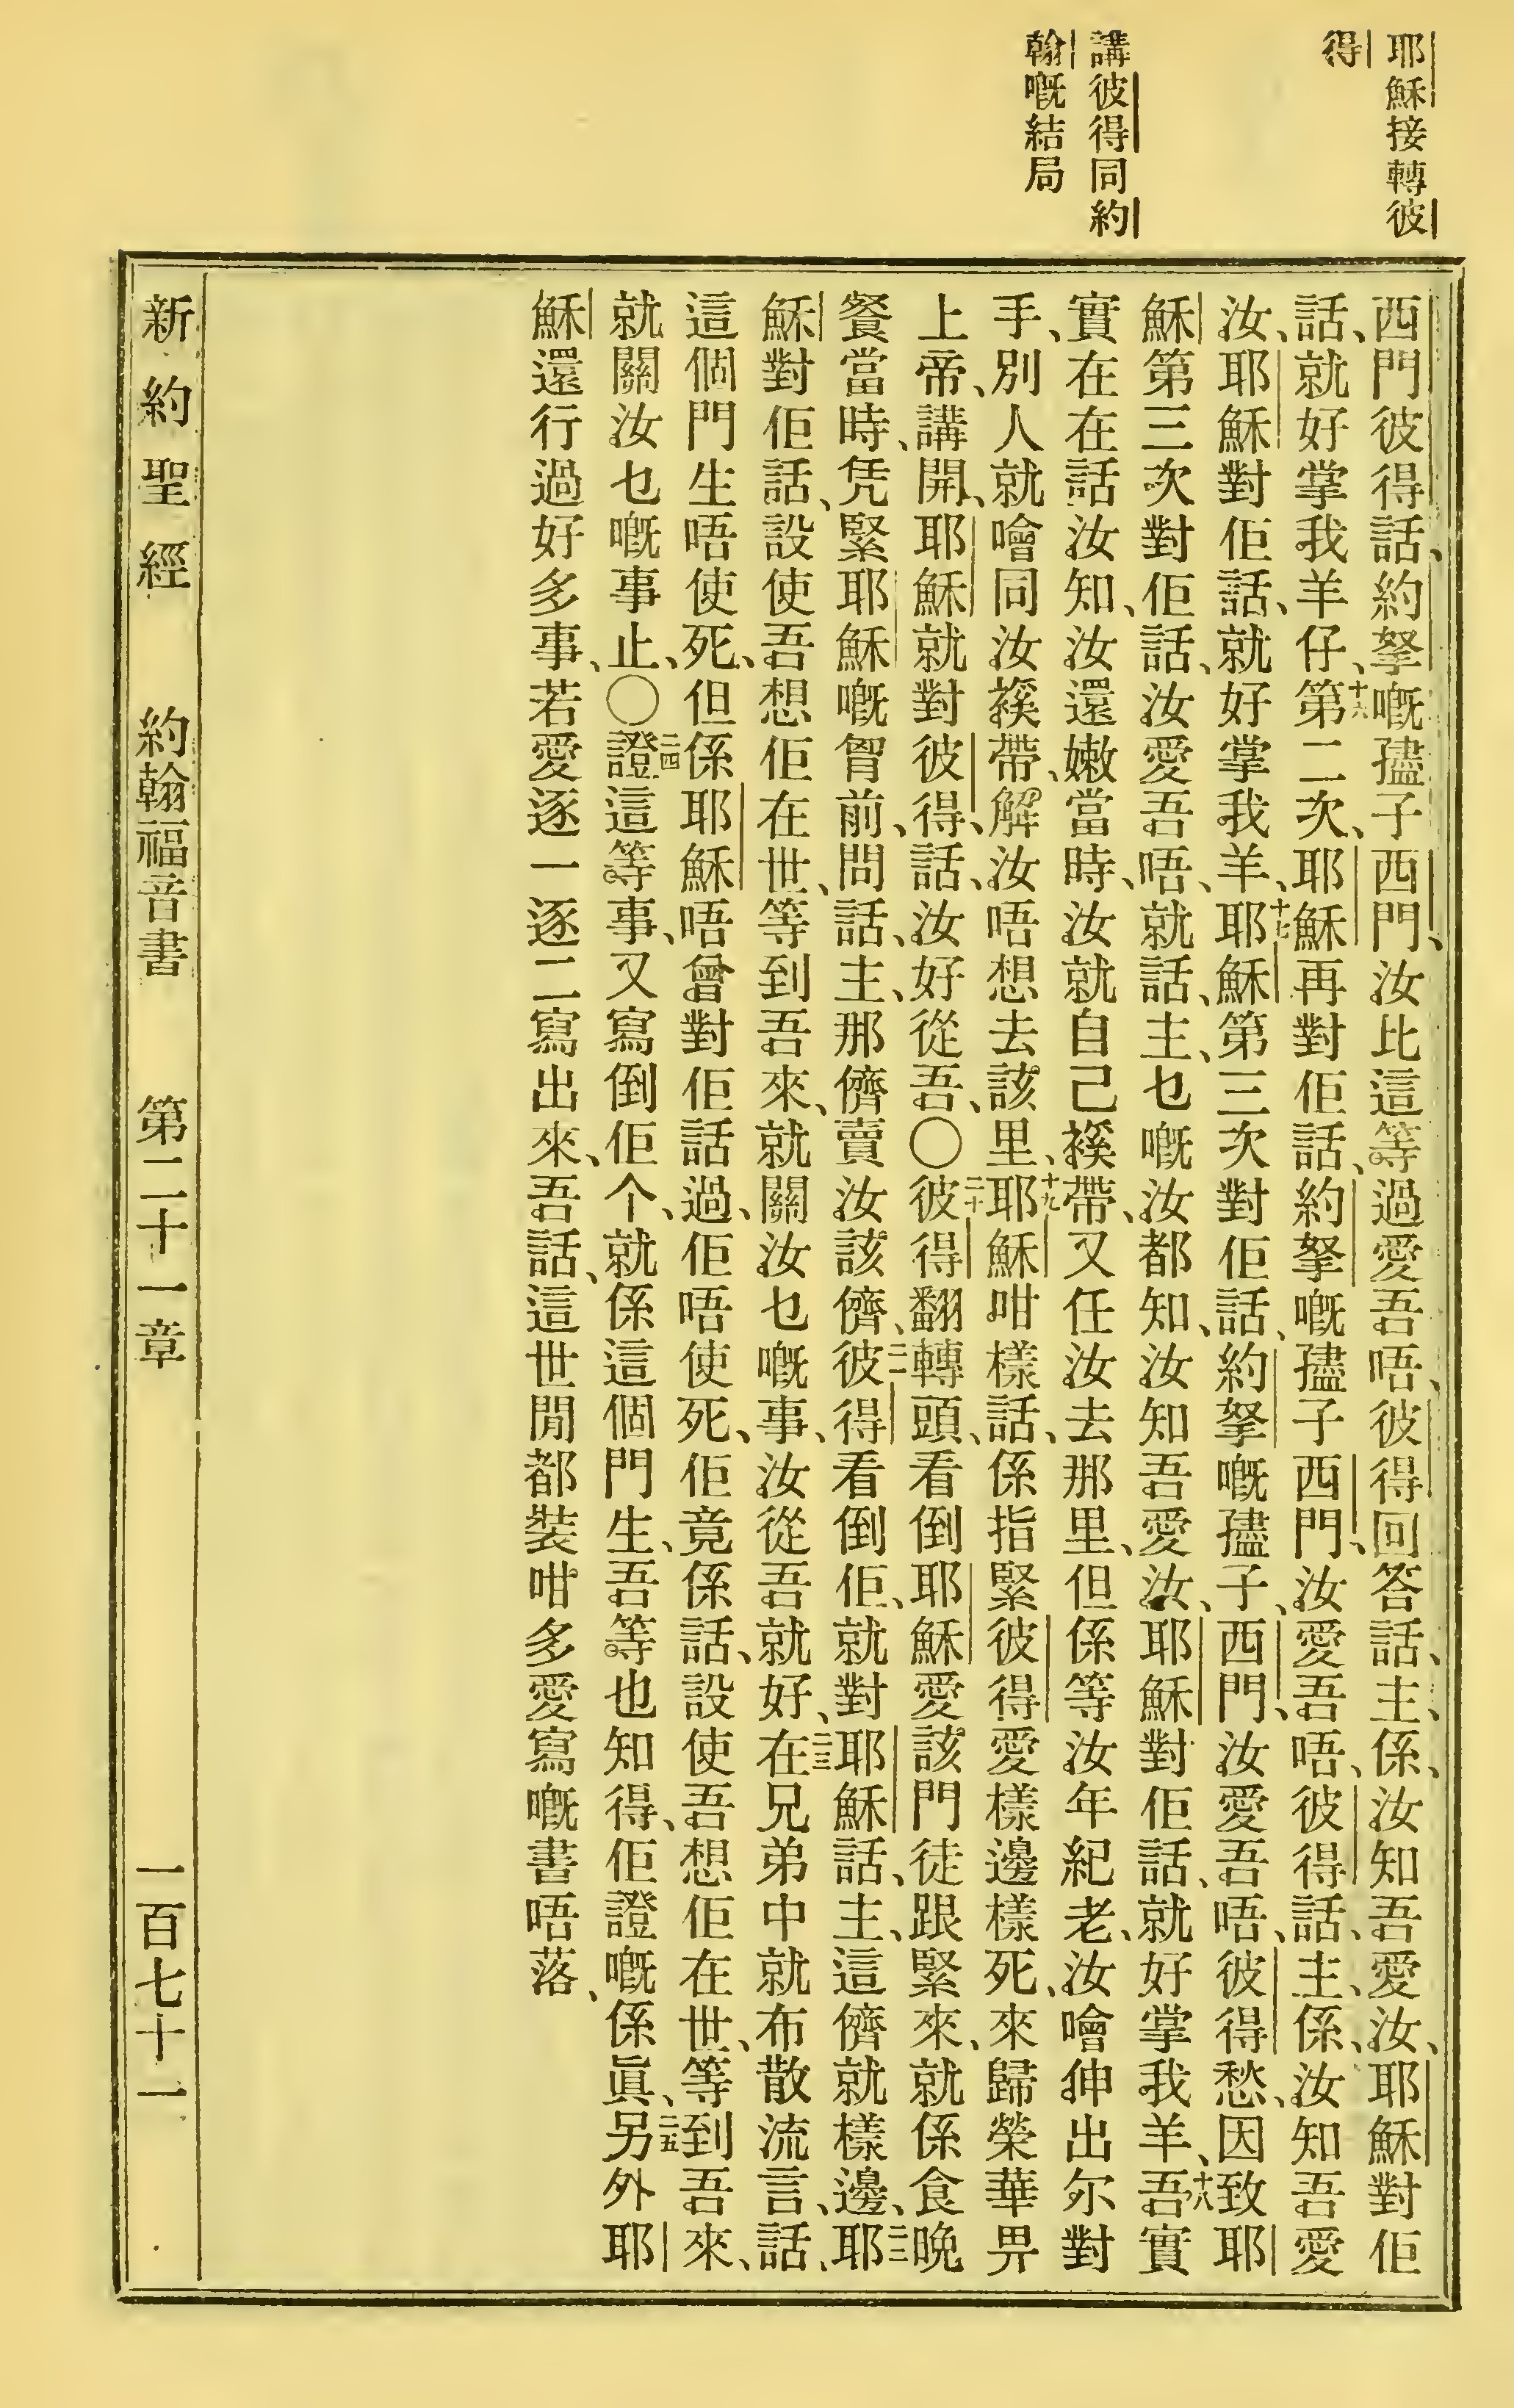 耶穌接轉彼
得
講彼得同約
翰嘅結局
西門彼得話、約拏嘅孻子西門、汝比這等過愛吾唔、彼得回答話、主、係、汝知吾愛汝、耶穌對佢
話、就好掌我羊仔、十六第二次、耶穌再對佢話、約拏嘅孻子西門、汝愛吾唔、彼得話、主、係、汝知吾愛
汝、耶穌對佢話、就好掌我羊、十七耶穌第三次對佢話、約拏嘅孻子、西門、汝愛吾唔、彼得愁、因致耶
穌第三次對佢話、汝愛吾唔、就話、主、乜嘅汝都知、汝知吾愛汝、耶穌對佢話、就好掌我羊、十八吾實
實在在話汝知、汝還嫩當時、汝就自己䙆帶、又任汝去那里、但係等汝年紀老、汝噲伸出尔對
手、別人就噲同汝䙆帶、解汝唔想去該里、十九耶穌咁樣話、係指緊彼得愛樣邊樣死、來歸榮華畀
上帝、講開、耶穌就對彼得、話、汝好從吾、〇二十彼得翻轉頭、看倒耶穌愛該門徒跟緊來、就係食晚
餐當時、凭緊耶穌嘅胷前、問話、主、那儕賣汝該儕、二一彼得看倒佢、就對耶穌話、主、這儕就樣邊、二二耶
穌對佢話、設使吾想佢在世、等到吾來、就關汝乜嘅事、汝從吾就好、二三在兄弟中就布散流言、話、
這個門生唔使死、但係耶穌唔曾對佢話過、佢唔使死、佢竟係話、設使吾想佢在世、等到吾來、
就關汝乜嘅事止、〇二四證這等事、又寫倒佢个、就係這個門生、吾等也知得、佢證嘅係眞、二五另外耶
穌還行過好多事、若愛逐一逐二寫出來、吾話、這世間都裝咁多愛寫嘅書唔落、
新約聖經　約翰福音書　第二十一章　一百七十一